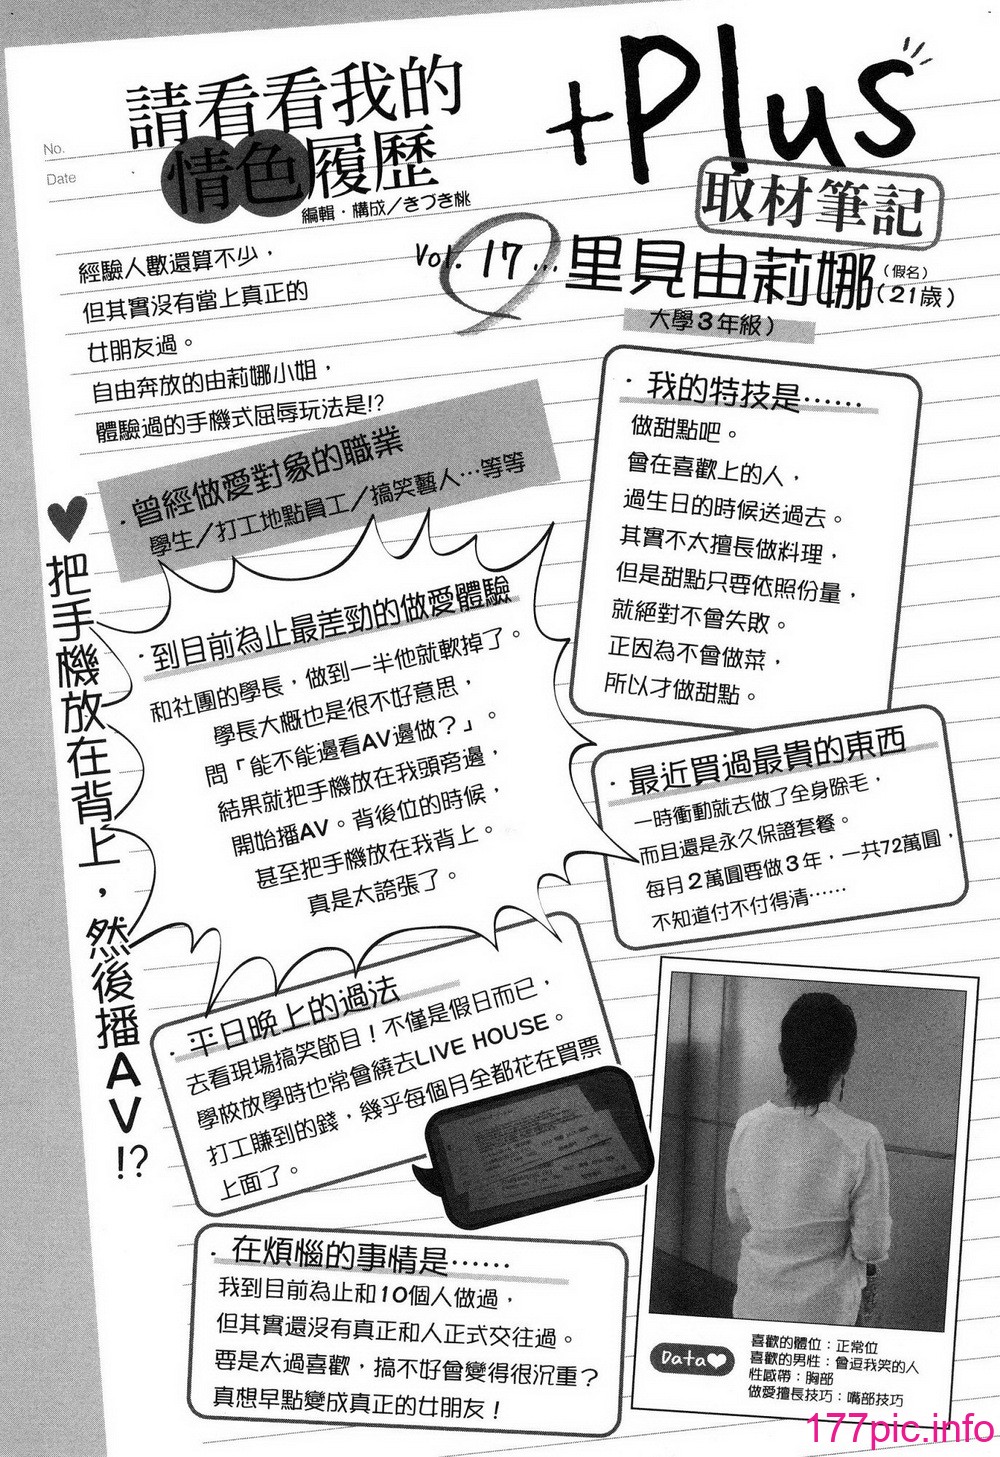 No.
Date
請看看我的
情色履歷
編輯・構成／きづき桃
+Plus
取材筆記
Vol. 17…里見由莉娜(假名)(21歲)
大學3年級）
經驗人數還算不少，
但其實沒有當上真正的
女朋友過。
自由奔放的由莉娜小姐，
體驗過的手機式屈辱玩法是!?
・曾經做愛對象的職業
學生／打工地點員工／搞笑藝人…等等
・我的特技是……
做甜點吧。
曾在喜歡上的人，
過生日的時候送過去。
其實不太擅長做料理，
但是甜點只要依照份量，
就絕對不會失敗。
正因為不會做菜，
所以才做甜點。
♥把手機放在背上，然後播AV!?
・到目前為止最差勁的做愛體驗
和社團的學長，做到一半他就軟掉了。
學長大概也是很不好意思，
問「能不能邊看AV邊做？」。
結果就把手機放在我頭旁邊，
開始播AV。背後位的時候，
甚至把手機放在我背上。
真是太誇張了。
・最近買過最貴的東西
一時衝動就去做了全身除毛，
而且還是永久保證套餐。
每月2萬圓要做3年，一共72萬圓，
不知道付不付得清……
・平日晚上的過法
去看現場搞笑節目！不僅是假日而已，
學校放學時也常會繞去LIVE HOUSE。
打工賺到的錢，幾乎每個月全都花在買票
上面了。
・在煩惱的事情是……
我到目前為止和10個人做過，
但其實還沒有真正和人正式交往過。
要是太過喜歡，搞不好會變得很沉重？
真想早點變成真正的女朋友！
Data♥
喜歡的體位：正常位
喜歡的男性：會逗我笑的人
性感帶：胸部
做愛擅長技巧：嘴部技巧
177pic.info